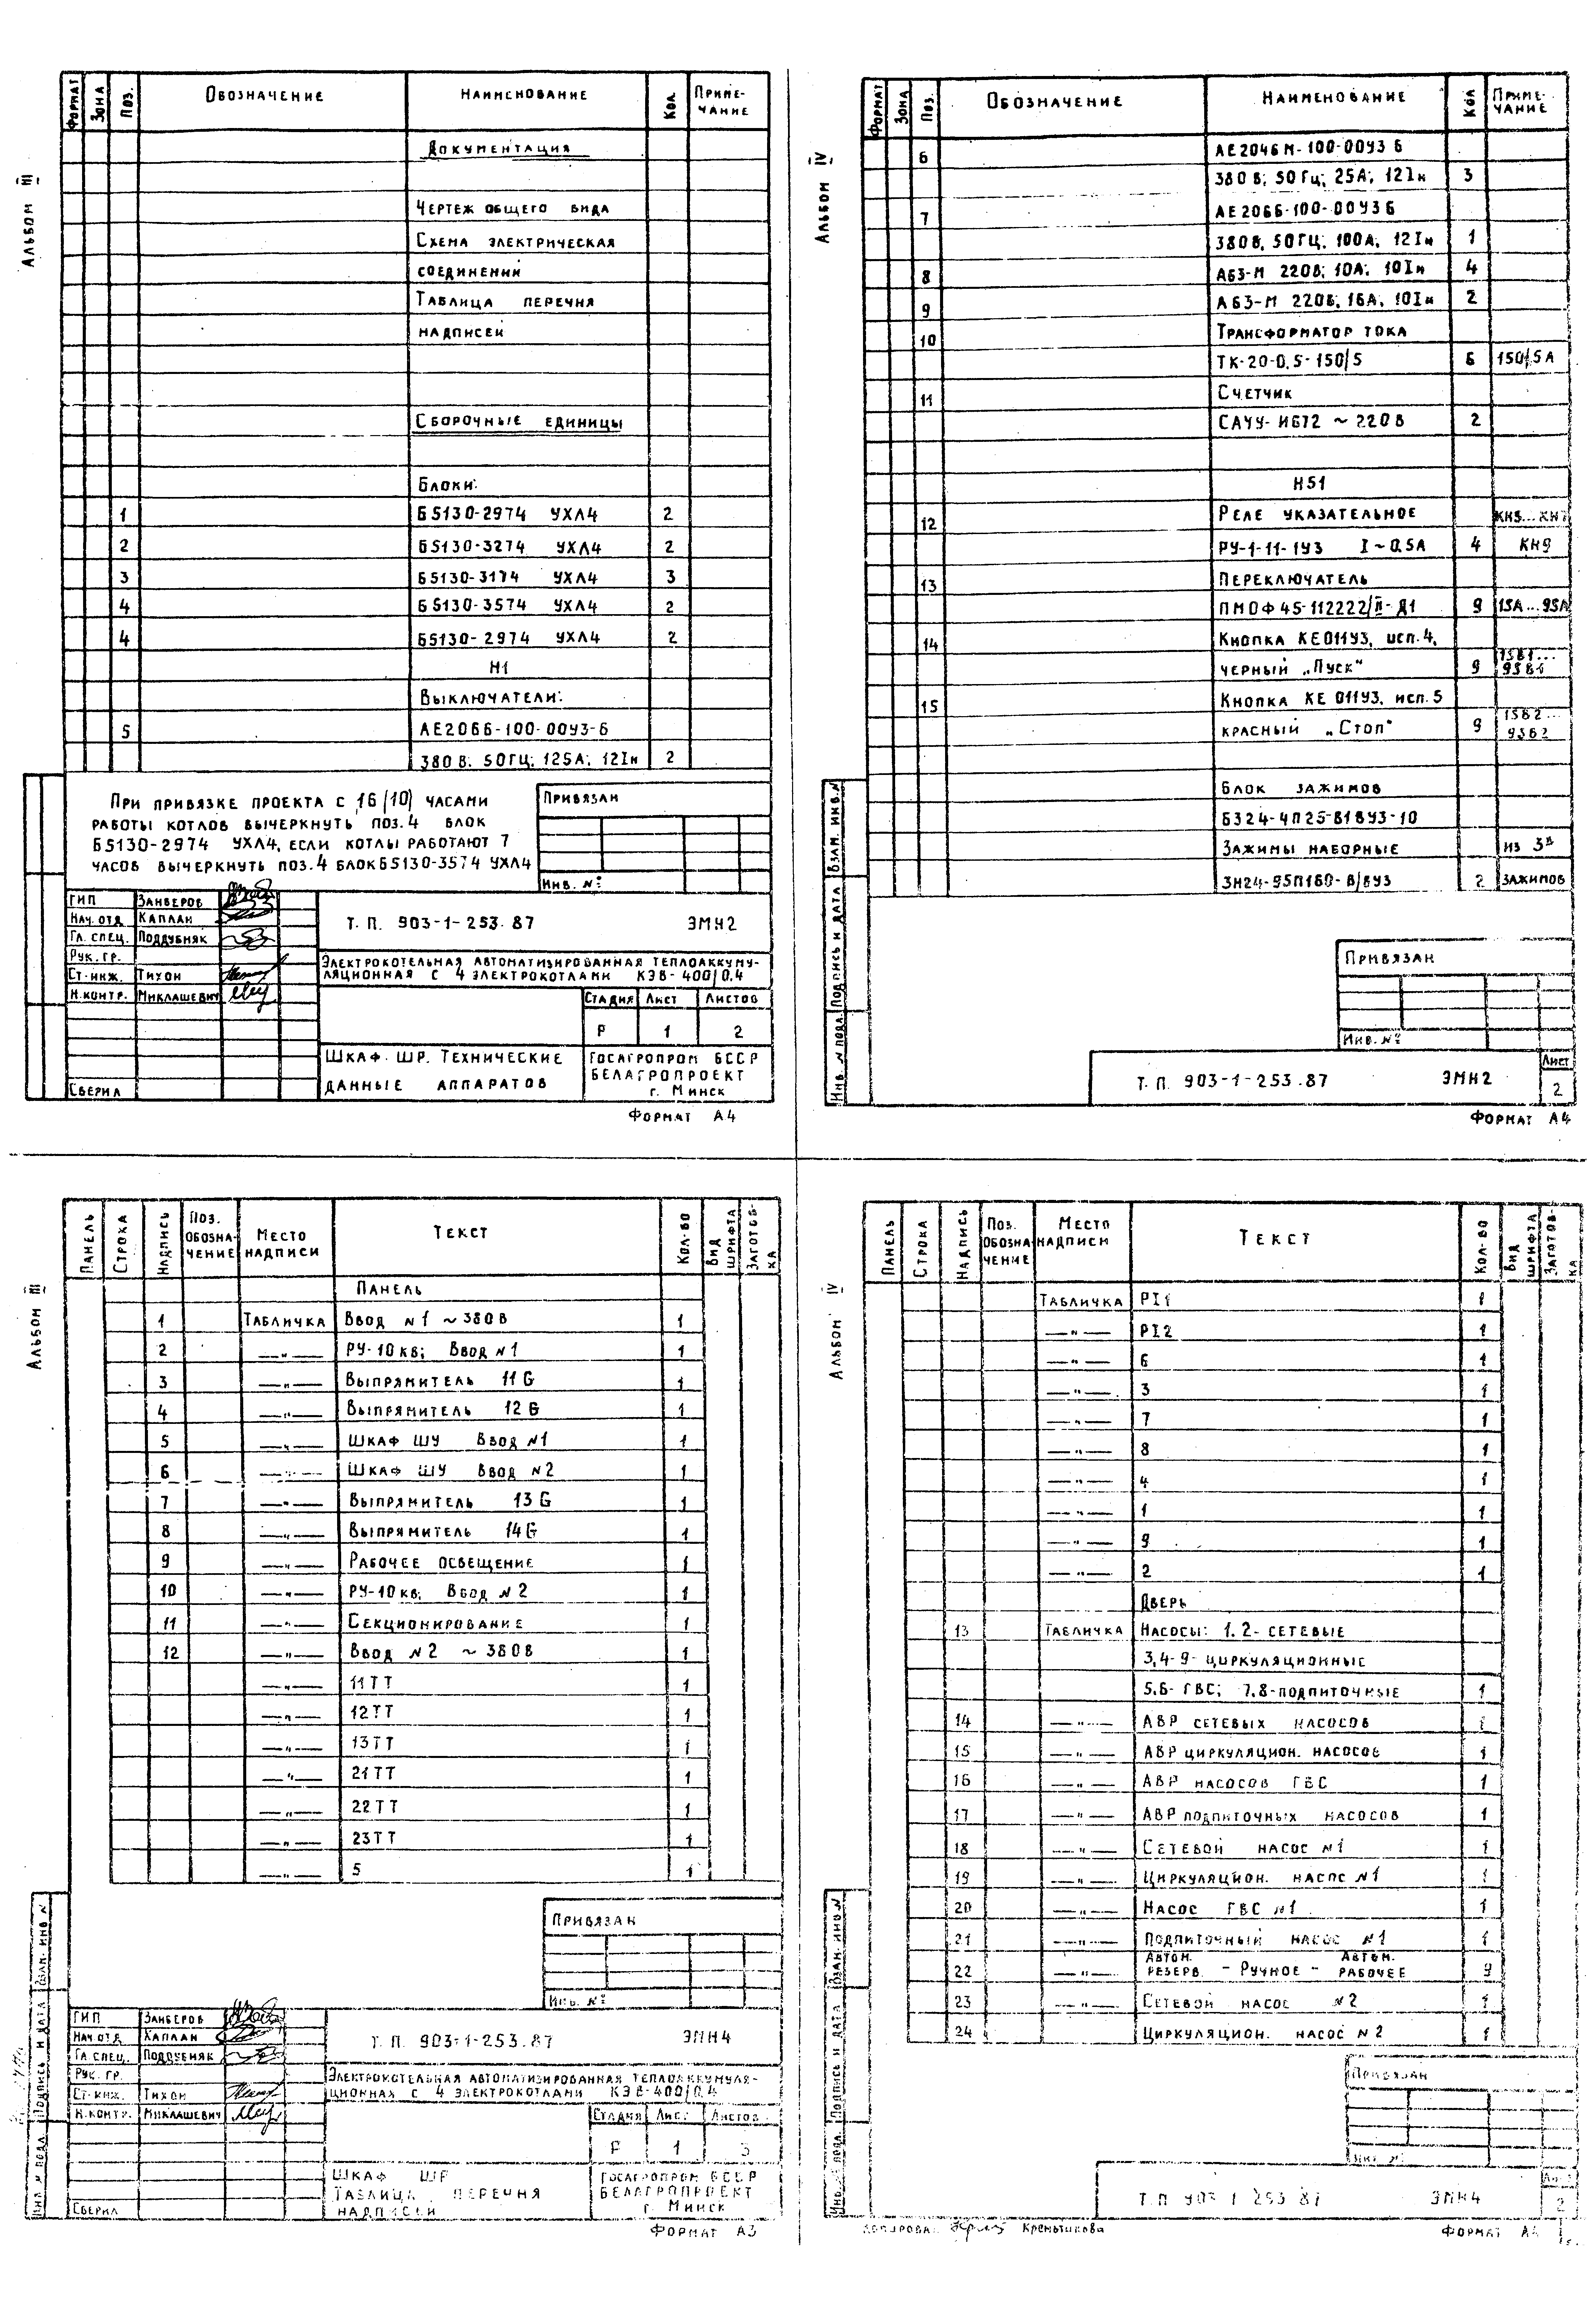 Альбом III
Формат Зона Поз. Обозначение Наименование Кол. Приме-
чание
Документация
Чертеж общего вида
Схема электрическая
соединений
Таблица перечня
надписей
Сборочные единицы
Блоки:
1 Б5130-2974 УХЛ4 2
2 Б5130-3274 УХЛ4 2
3 Б5130-3174 УХЛ4 3
4 Б5130-3574 УХЛ4 2
4 Б5130-2974 УХЛ4 2
Н1
Выключатели:
5 АЕ2066-100-00У3-Б
380 В; 50Гц; 125А; 12Iн 2
При привязке проекта с 16(10) часами
работы котлов вычеркнуть поз.4 блок
Б5130-2974 УХЛ4, если котлы работают 7
часов вычеркнуть поз.4 блок Б5130-3574 УХЛ4
Привязан
Инв. №
ГИП Занберов
Нач. отд Каплан
Гл. спец. Поддубняк
Рук. гр.
Ст. инж. Тихон
Н.контр. Миклашевич
Сверил
Т. П. 903-1-253.87 ЭМН2
Электрокотельная автоматизированная теплоаккуму-
ляционная с 4 электрокотлами КЭВ-400/0.4
Стадия Лист Листов
Р 1 2
Шкаф ШР. Технические
данные аппаратов
Госагропром БССР
Белагропроект
г. Минск
Формат А4
Альбом IV
Формат Зона Поз. Обозначение Наименование Кол Приме-
чание
6 АЕ2046М-100-00У3 Б
380 В; 50Гц; 25А; 12Iн 3
7 АЕ2066-100-00У3Б
380В, 50ГЦ; 100А, 12Iн 1
8 А63-М 220В; 10А; 10Iн 4
9 А63-М 220В; 16А; 10Iн 2
10 Трансформатор тока
ТК-20-0.5-150/5 6 150/5А
11 Счетчик
САЧУ-И672 ~ 220В 2
Н51
12 Реле указательное КН5...КН7
РУ-1-11-1У3 I~0.5А 4 КН9
13 Переключатель
ПМОФ45-112222/II-Д1 9 1SА...9SА
14 Кнопка КЕ011У3, исп.4,
черный „Пуск“ 9 1SВ1...
9SВ1
15 Кнопка КЕ 011У3, исп.5
красный „Стоп“ 9 1SВ2...
9SВ2
Блок зажимов
Б324-4П25-В1ВУ3-10
Зажимы наборные из 3х
ЗН24-95П160-В/ВУ3 2 зажимов
Привязан
Инв. №
Взам. инв.№
Подпись и дата
Инв. № подл.
Т. П. 903-1-253.87 ЭМН2
Лист
2
Формат А4
Альбом III
Панель Строка Надпись Поз.
обозна-
чение Место
надписи Текст Кол-во Вид
шрифта Заготов-
ка
Панель
1 Табличка Ввод №1 ~380В 1
2 —"— РУ-10кв; Ввод №1 1
3 —"— Выпрямитель 11G 1
4 —"— Выпрямитель 12G 1
5 —"— Шкаф ШУ Ввод №1 1
6 —"— Шкаф ШУ Ввод №2 1
7 —"— Выпрямитель 13G 1
8 —"— Выпрямитель 14G 1
9 —"— Рабочее освещение 1
10 —"— РУ-10кв; Ввод №2 1
11 —"— Секционирование 1
12 —"— Ввод №2 ~380В 1
—"— 11ТТ 1
—"— 12ТТ 1
—"— 13ТТ 1
—"— 21ТТ 1
—"— 22ТТ 1
—"— 23ТТ 1
—"— 5 1
Привязан
Инв. №
Взам. инв №
Подпись и дата
Инв. № подл.
ГИП Занберов
Нач.отд Каплан
Гл.спец. Поддубняк
Рук. гр.
Ст.инж. Тихон
Н.контр. Миклашевич
Сверил
Т. П. 903-1-253.87 ЭМН4
Электрокотельная автоматизированная теплоаккумуля-
ционная с 4 электрокотлами КЭВ-400/0.4
Стадия Лист Листов
Р 1 3
Шкаф ШР
Таблица перечня
надписей
Госагропром БССР
Белагропроект
г. Минск
Формат А3
Альбом IV
Панель Строка Надпись Поз.
обозна-
чение Место
надписи Текст Кол-во Вид
шрифта Заготов-
ка
Табличка РI1 1
—"— РI2 1
—"— 6 1
—"— 3 1
—"— 7 1
—"— 8 1
—"— 4 1
—"— 1 1
—"— 9 1
—"— 2 1
Дверь
13 Табличка Насосы: 1.2- сетевые
3,4-9- циркуляционные
5.6- ГВС; 7.8-подпиточные 1
14 —"— АВР сетевых насосов 1
15 —"— АВР циркуляцион. насосов 1
16 —"— АВР насосов ГВС 1
17 —"— АВР подпиточных насосов 1
18 —"— Сетевой насос №1 1
19 —"— Циркуляцион. насос №1 1
20 —"— Насос ГВС №1 1
21 —"— Подпиточный насос №1 1
22 —"— Автом.
резерв. - Ручное - Автом.
рабочее 9
23 —"— Сетевой насос №2 1
24 Циркуляцион. насос №2 1
Привязан
Инв. №
Взам. инв №
Подпись и дата
Инв. № подл.
Т. П 903-1-253.87 ЭМН4
Лист
2
Копировал Креньтикова
Формат А4